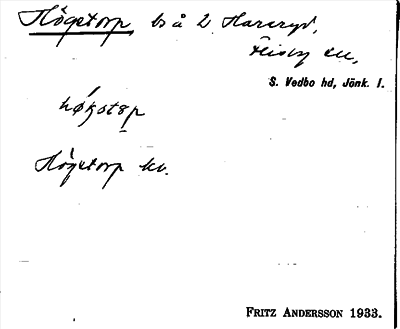 Högstorp bs å 2 Hareryd,
Flisby sn,
S. Vedbo hd, Jönk. l.
Högstorp kv.
FRITZ ANDERSSON 1933.